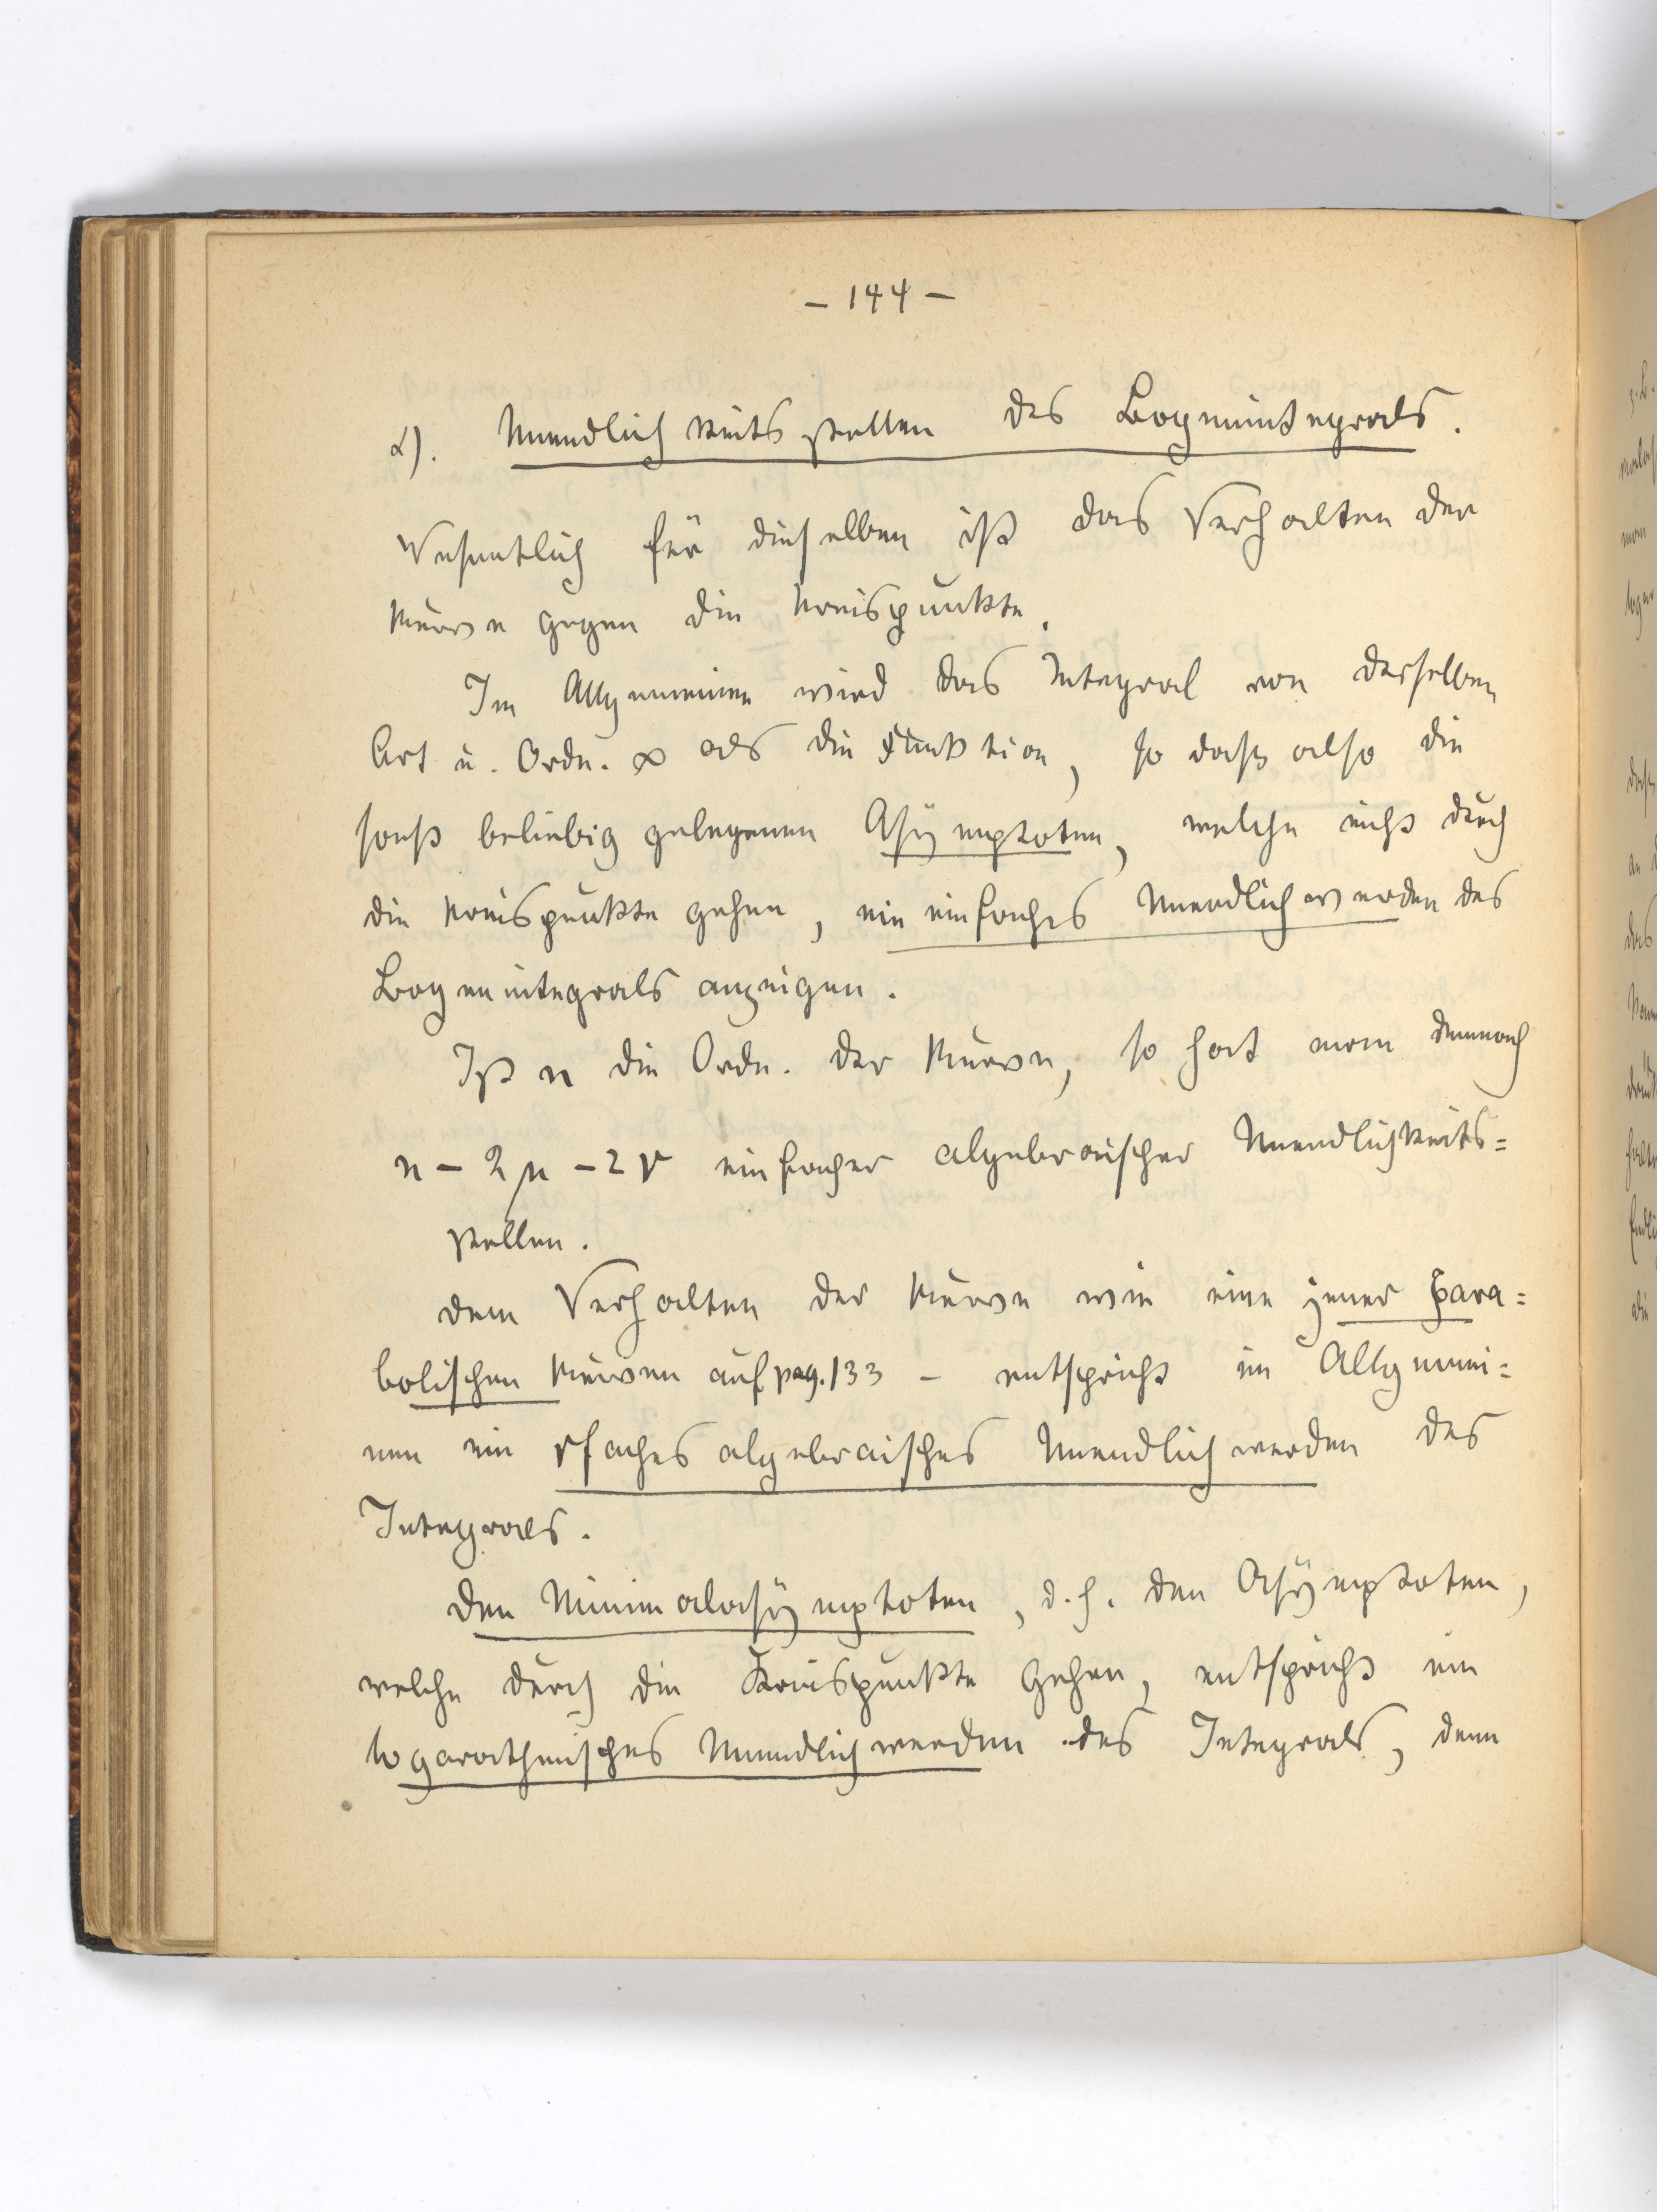 – 144 –
α). Unendlichkeitsstellen des Bogenintegrals.
Wesentlich für dieselben ist das Verhalten der
Kurve gegen die Kreispunkte.
Im Allgemeinen wird das Integral von derselben
Art u. Ordn. ∞ als die Funktion, so daß also die
sonst beliebig gelegenen Asymptoten, welche nicht durch
die Kreispunkte gehen, ein einfaches Unendlichwerden des
Bogenintegrals anzeigen.
Ist n die Ordn. der Kurve, so hat man demnach
n – 2μ – 2ν einfacher algebraischer Unendlichkeits=
stellen.
Dem Verhalten der Kurve wie eine jener para=
bolischen Kurven auf pag. 133 – entspricht im Allgemei=
nen ein rfaches algebraisches Unendlichwerden des
Integrals.
Den Minimalasymptoten, d. h. den Asymptoten,
welche durch die Kreispunkte gehen, entspricht ein
logarathmisches Unendlichwerden des Integrals, denn